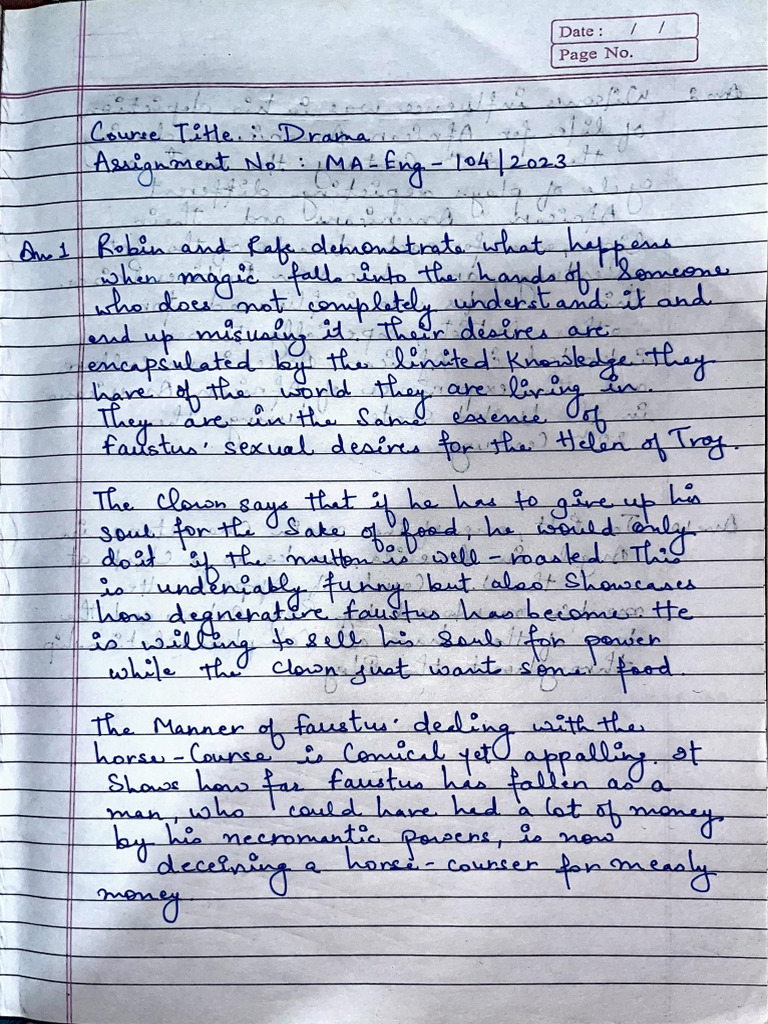 Date : / /
Page No.
Course Title : Drama
Assignment No : MA-Eng-104/2023
Ans 1 Robin and Rafe demonstrate what happens
when magic falls into the hands of Someone
who does not completely understand it and
end up misusing it. Their desires are
encapsulated by the limited Knowledge they
have of the world they are living in.
They are in the Same essence of
faustus' sexual desires for the Helen of Troy.
The Clown says that if he has to give up his
soul for the Sake of food, he would only
do it if the mutton is well-roasted. This
is undeniably funny but also Showcases
how degnerative faustus has become. He
is willing to sell his Soul for power
while the Clown just want some food.
The Manner of faustus' dealing with the
horse-Course is Comical yet appalling. It
Shows how far faustus has fallen as a
man, who could have had a lot of money
by his necromantic powers, is now
deceining a horse-courser for measly
money.